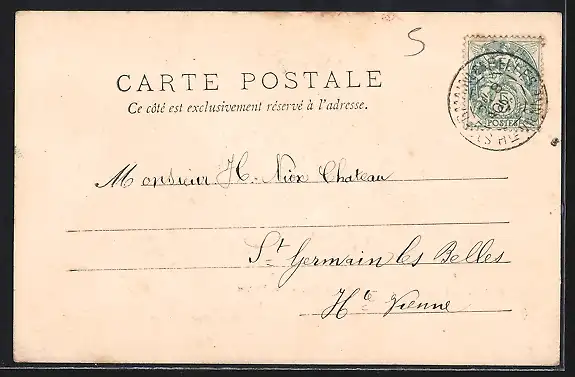 5
CARTE POSTALE
Ce côté est exclusivement réservé à l'adresse.
POSTES
Monsieur H. Niox Chateau
St Germain les Belles
Hte Vienne